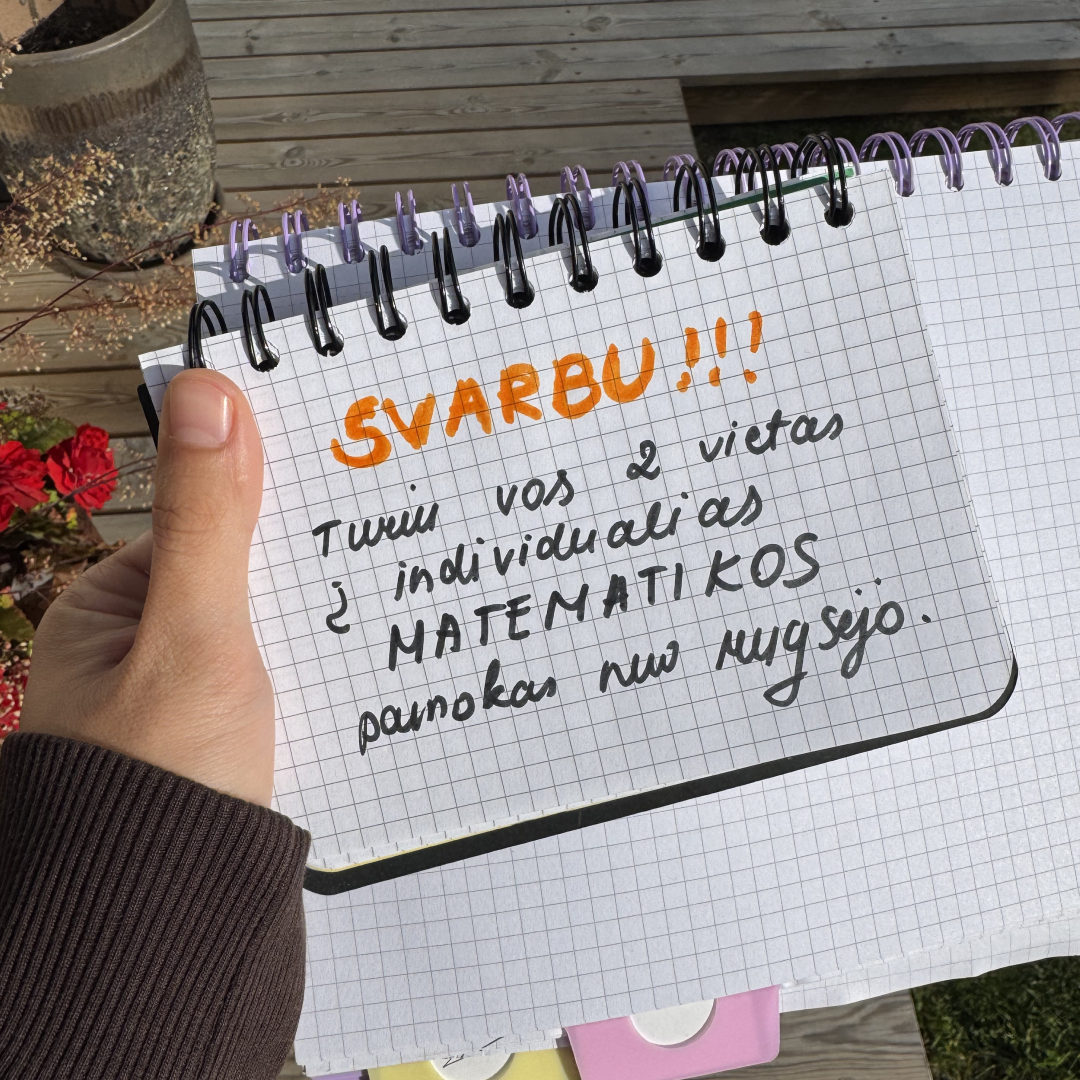 SVARBU!!!
Turiu vos 2 vietas
į individualias
MATEMATIKOS
pamokas nuo rugsėjo.